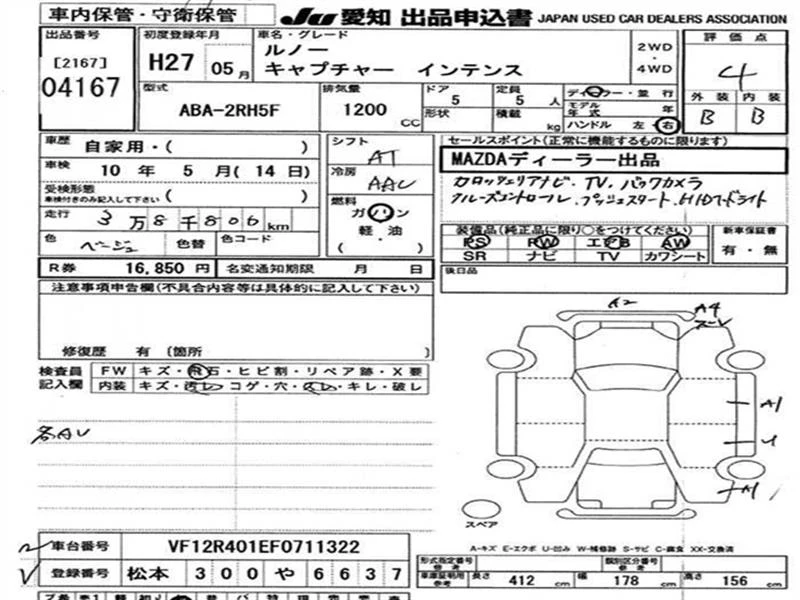 車内保管・守衛保管
JU 愛知 出品申込書 JAPAN USED CAR DEALERS ASSOCIATION
出品番号
[2167]
04167
初度登録年月
H27 05月
車名・グレード
ルノー
キャプチャー インテンス
2WD
・
4WD
評価点
4
外装 内装
B B
型式
ABA-2RH5F
排気量
1200
CC
ドア
5
定員
5人
形状
積載
kg
ディーラー・並行
モデル年式 年
ハンドル 左・右
車歴 自家用・( )
車検 10年 5月(14日)
受検形態
車検付きのみ記入して下さい ( )
走行 3万8千806km
色 ベージュ 色替 色コード
シフト
AT
冷房
AAC
燃料
ガソリン
軽・油
( ・ )
セールスポイント(正常に機能するものに限ります)
MAZDAディーラー出品
カロッツェリアナビ・TV・バックカメラ
クルーズコントロール・プッシュスタート・HIDヘッドライト
装備品(純正品に限り○をつけてください)
PS PW エアB AW
SR ナビ TV カワシート
新車保証書
有・無
R券 16,850円 名変通知期限 月 日
後日品
注意事項申告欄(不具合内容等は具体的に記入して下さい)
修復歴 有 〔箇所 〕
検査員記入欄
FW キズ・飛石・ヒビ割・リペア跡・X要
内装 キズ・汚レ・コゲ・穴・スレ・キレ・破レ
各AU
A2
A4
A1
U
A1
スペア
A-キズ E-エクボ U-凹み W-補修跡 S-サビ C-腐食 XX-交換済
車台番号 VF12R401EF0711322
登録番号 松本 300 や 6637
型式指定番号 参考
類別区分番号 参考
車庫証明用参考 長さ 412cm 幅 178cm 高さ 156cm